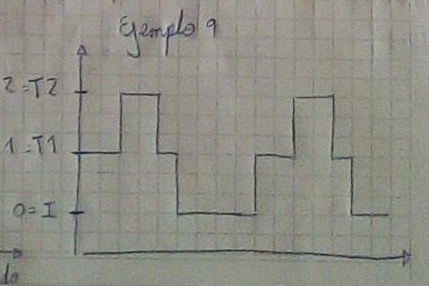 Ejemplo 9
2=T2
1=T1
0=I
do